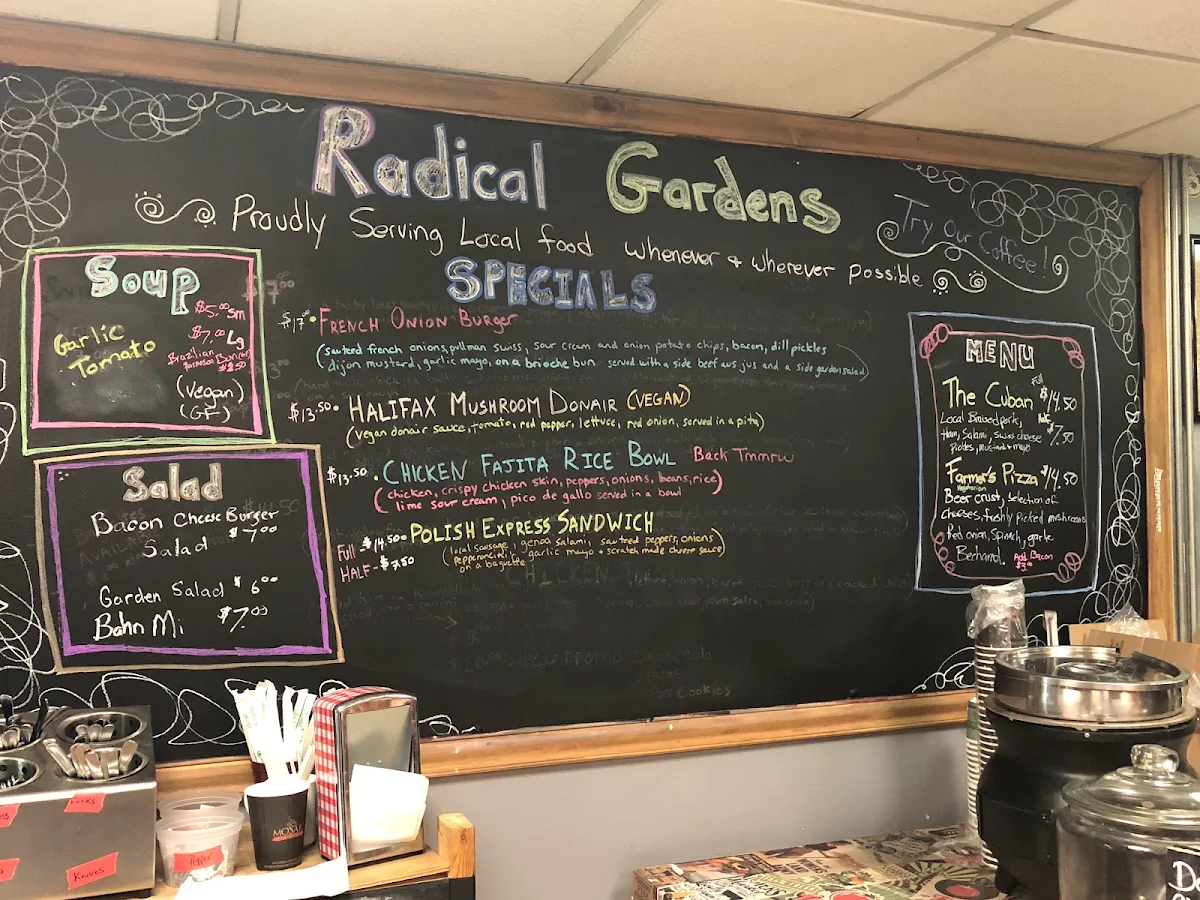 Radical Gardens
Proudly Serving Local food whenever & wherever possible
Try Our Coffee!
SPECIALS
Soup
$5.00 sm
Garlic
Tomato
$7.00 Lg
(Vegan)
(GF)
Salad
Bacon Cheese Burger
Salad $7.00
Garden Salad $6.00
Bahn Mi $7.00
$17.00 • FRENCH ONION BURGER
(sauteed french onions, pullman swiss, sour cream and onion potato chips, bacon, dill pickles
dijon mustard, garlic mayo, on a brioche bun. served with a side beef aus jus and a side garden salad)
$13.50 • HALIFAX MUSHROOM DONAIR (VEGAN)
(vegan donair sauce, tomato, red pepper, lettuce, red onion, served in a pita)
$13.50 • CHICKEN FAJITA RICE BOWL Back Tmmrw
(chicken, crispy chicken skin, peppers, onions, beans, rice)
lime sour cream, pico de gallo served in a bowl
FULL $14.50 • POLISH EXPRESS SANDWICH
HALF - $7.50
(local sausage, genoa salami, sauteed peppers, onions
pepperoncini, garlic mayo & scratch made cheese sauce)
on a baguette
MENU
The Cuban Full $14.50
Local Braised pork, Half $7.50
Ham, Salami, Swiss cheese
Pickles, mustard & mayo
Farmer's Pizza $14.50
Vegetarian
Beer crust, selection of
cheeses, freshly picked mushrooms
Red onion, Spinach, garlic
Bechamel. Add Bacon
$3.00
Forks
Knives
Pepper
MOSAIC